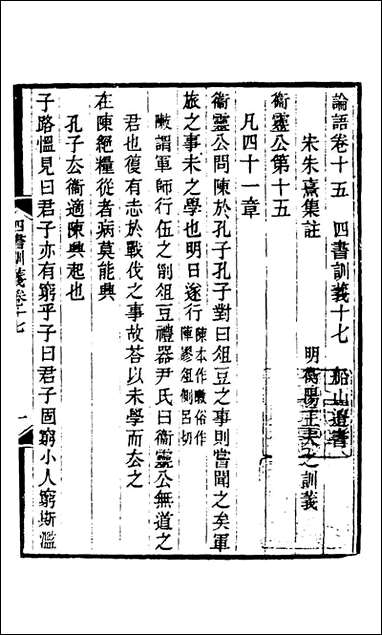 論語卷十五　四書訓義十七　船山遺書
宋朱熹集註　明衡陽王夫之訓義
衞靈公第十五
凡四十一章
衞靈公問陳於孔子孔子對曰俎豆之事則嘗聞之矣軍
旅之事未之學也明日遂行陳本作敶俗作
陣謬俎側呂切
敶謂軍師行伍之𠛱俎豆禮器尹氏曰衞靈公無道之
君也復有志於戰伐之事故荅以未學而去之
在陳絕糧從者病莫能興
孔子去衞適陳興起也
子路慍見曰君子亦有窮乎子曰君子固窮小人窮斯濫
四書訓義卷十七
一